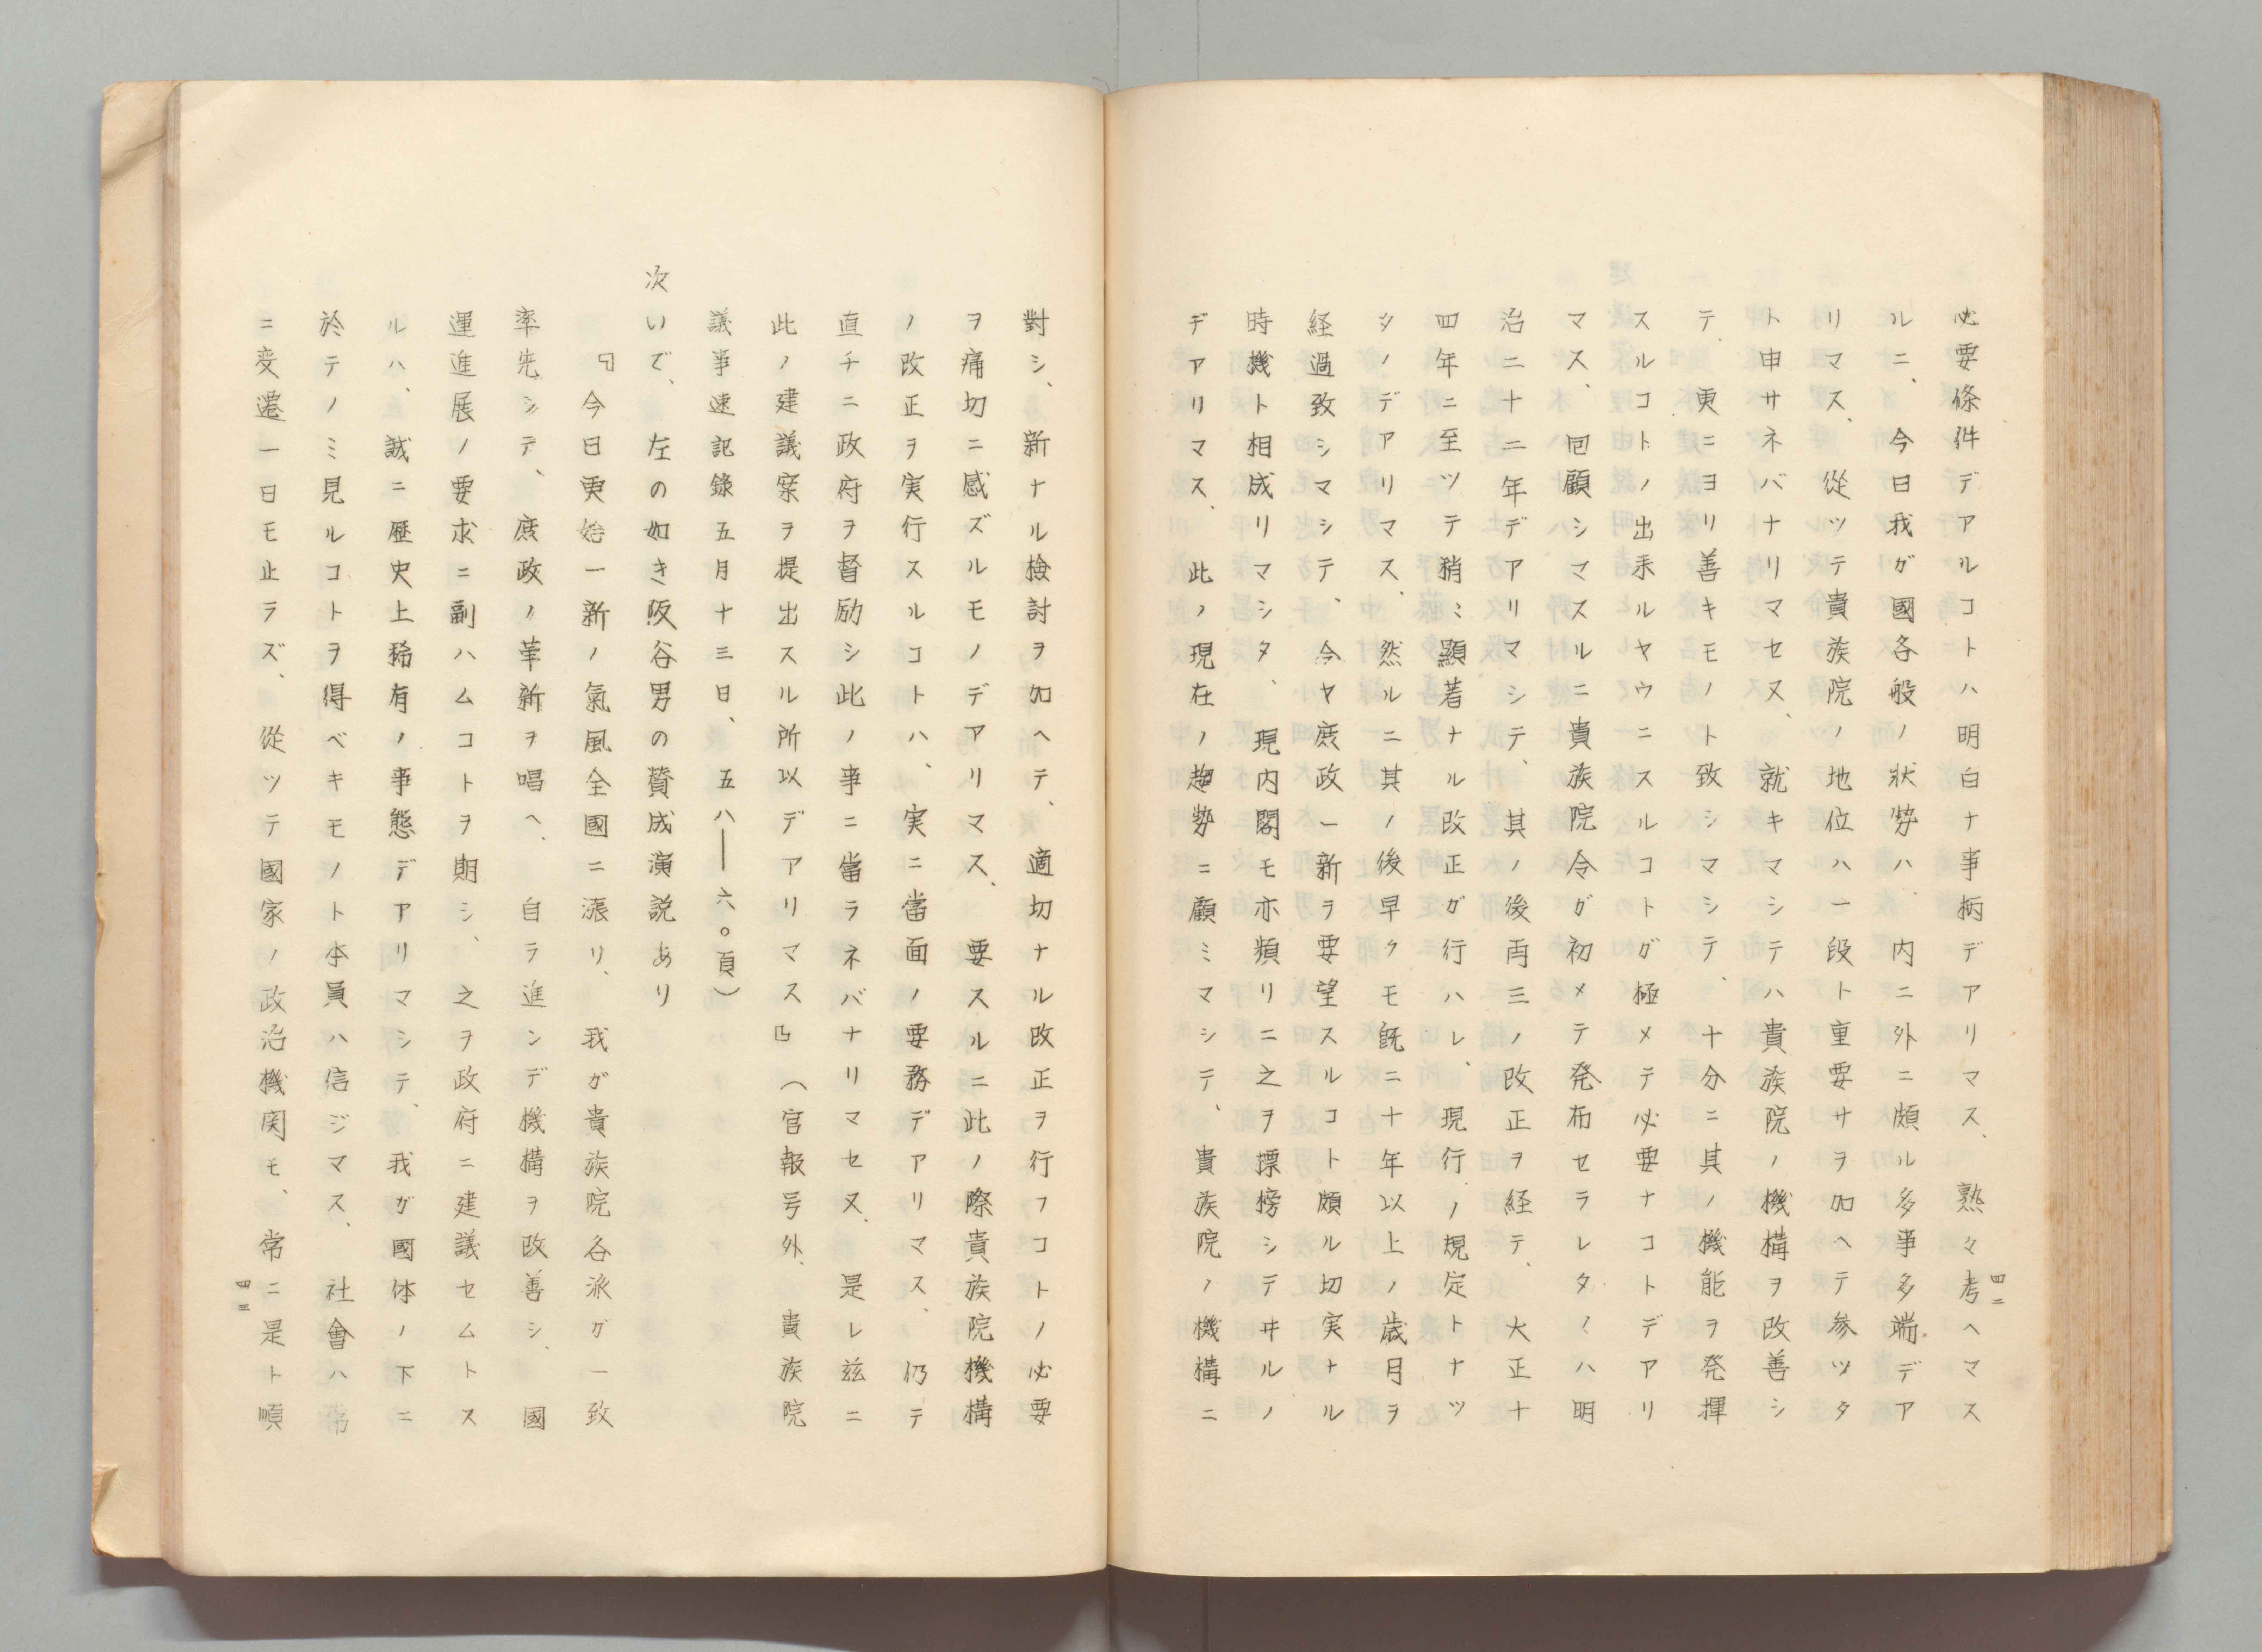 必要條件デアルコトハ明白ナ事柄デアリマス、熟々考ヘマス
ルニ、今日我ガ國各般ノ狀勢ハ、内ニ外ニ頗ル多事多端デア
リマス、從ツテ貴族院ノ地位ハ一段ト重要サヲ加ヘテ参ツタ
ト申サネバナリマセヌ、就キマシテハ貴族院ノ機構ヲ改善シ
テ、更ニヨリ善キモノト致シマシテ、十分ニ其ノ機能ヲ発揮
スルコトノ出来ルヤウニスルコトガ極メテ必要ナコトデアリ
マス、回顧シマスルニ貴族院令ガ初メテ発布セラレタノハ明
治二十二年デアリマシテ、其ノ後両三ノ改正ヲ経テ、大正十
四年ニ至ツテ稍ミ顯著ナル改正ガ行ハレ、現行ノ規定トナツ
タノデアリマス、然ルニ其ノ後早クモ既ニ十年以上ノ歳月ヲ
経過致シマシテ、今ヤ庶政一新ヲ要望スルコト頗ル切実ナル
時機ト相成リマシタ、現内閣モ亦頻リニ之ヲ摽榜シテヰルノ
デアリマス、此ノ現在ノ趨勢ニ顧ミマシテ、貴族院ノ機構ニ
四二
對シ、新ナル檢討ヲ加ヘテ、適切ナル改正ヲ行フコトノ必要
ヲ痛切ニ感ズルモノデアリマス、要スルニ此ノ際貴族院機構
ノ改正ヲ実行スルコトハ、実ニ當面ノ要務デアリマス、仍テ
直チニ政府ヲ督励シ此ノ事ニ當ラネバナリマセヌ、是レ玆ニ
此ノ建議案ヲ提出スル所以デアリマス』（官報号外、貴族院
議事速記錄五月十三日、五八——六〇頁）
次いで、左の如き阪谷男の賛成演説あり
『今日更始一新ノ氣風全國ニ漲リ、我ガ貴族院各派ガ一致
率先シテ、庶政ノ革新ヲ唱ヘ、自ラ進ンデ機構ヲ改善シ、國
運進展ノ要求ニ副ハムコトヲ期シ、之ヲ政府ニ建議セムトス
ルハ、誠ニ歴史上稀有ノ事態デアリマシテ、我ガ國体ノ下ニ
於テノミ見ルコトヲ得ベキモノト本員ハ信ジマス、社會ハ常
ニ変遷一日モ止ラズ、從ツテ國家ノ政治機関モ、常ニ是ト順
四三